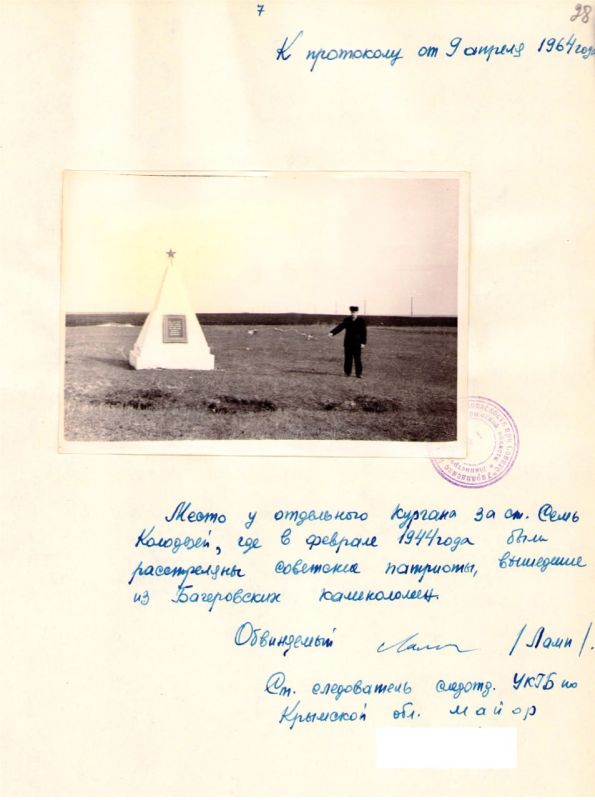 7
28
К протоколу от 9 апреля 1964 года
Место у отдельного кургана за ст. Семь
Колодезей, где в феврале 1944 года были
расстреляны советские патриоты, вышедшие
из Багеровских каменоломен.
Обвиняемый /Лами/.
Ст. следователь следотд. УКГБ по
Крымской обл. майор